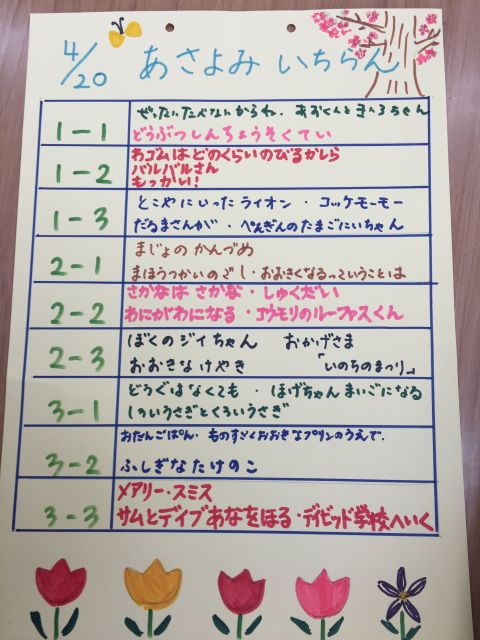 4/20 あさよみ いちらん
1-1
ぜったいたべないからね. あおくんときいろちゃん
どうぶつしんちょうそくてい
1-2
わゴムはどのくらいのびるかしら
バルバルさん
もっかい!
1-3
とこやにいったライオン・コッケモーモー
だるまさんが・ぺんぎんのたまごにいちゃん
2-1
まじょのかんづめ
まほうつかいのでし・おおきくなるっていうことは
2-2
さかなはさかな・しゅくだい
わにがわになる・コウモリのルーファスくん
2-3
ぼくのジィちゃん おかげさま
おおきなけやき 「いのちのまつり」
3-1
どうぐはなくても・ほげちゃんまいごになる
しろいうさぎとくろいうさぎ
3-2
おだんごぱん. ものすごくおおきなプリンのうえで.
ふしぎなたけのこ
3-3
メアリー・スミス
サムとデイブあなをほる・デイビッド学校へいく